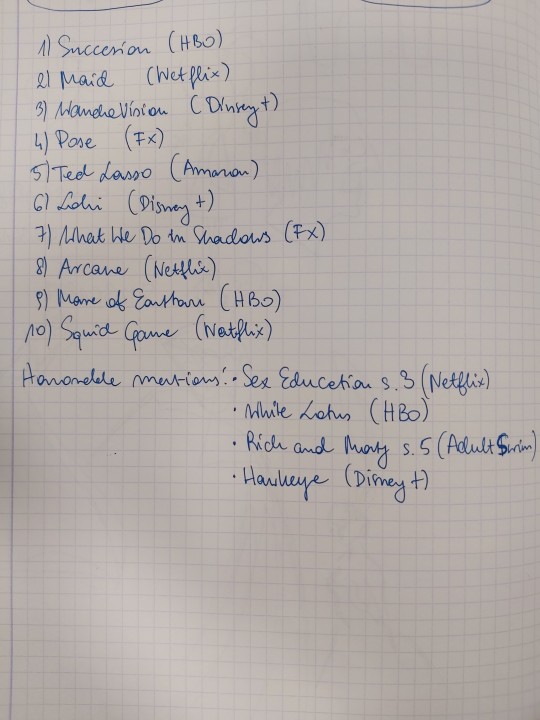 1) Succesion (HBO)
2) Maid (Netflix)
3) WandaVision (Disney+)
4) Pose (Fx)
5) Ted Lasso (Amazon)
6) Loki (Disney+)
7) What We Do In Shadows (Fx)
8) Arcane (Netflix)
9) Mare of Easttown (HBO)
10) Squid Game (Netflix)
Honorable mentions: • Sex Education s.3 (Netflix)
• White Lotus (HBO)
• Rick and Morty s.5 (Adult Swim)
• Hawkeye (Disney+)